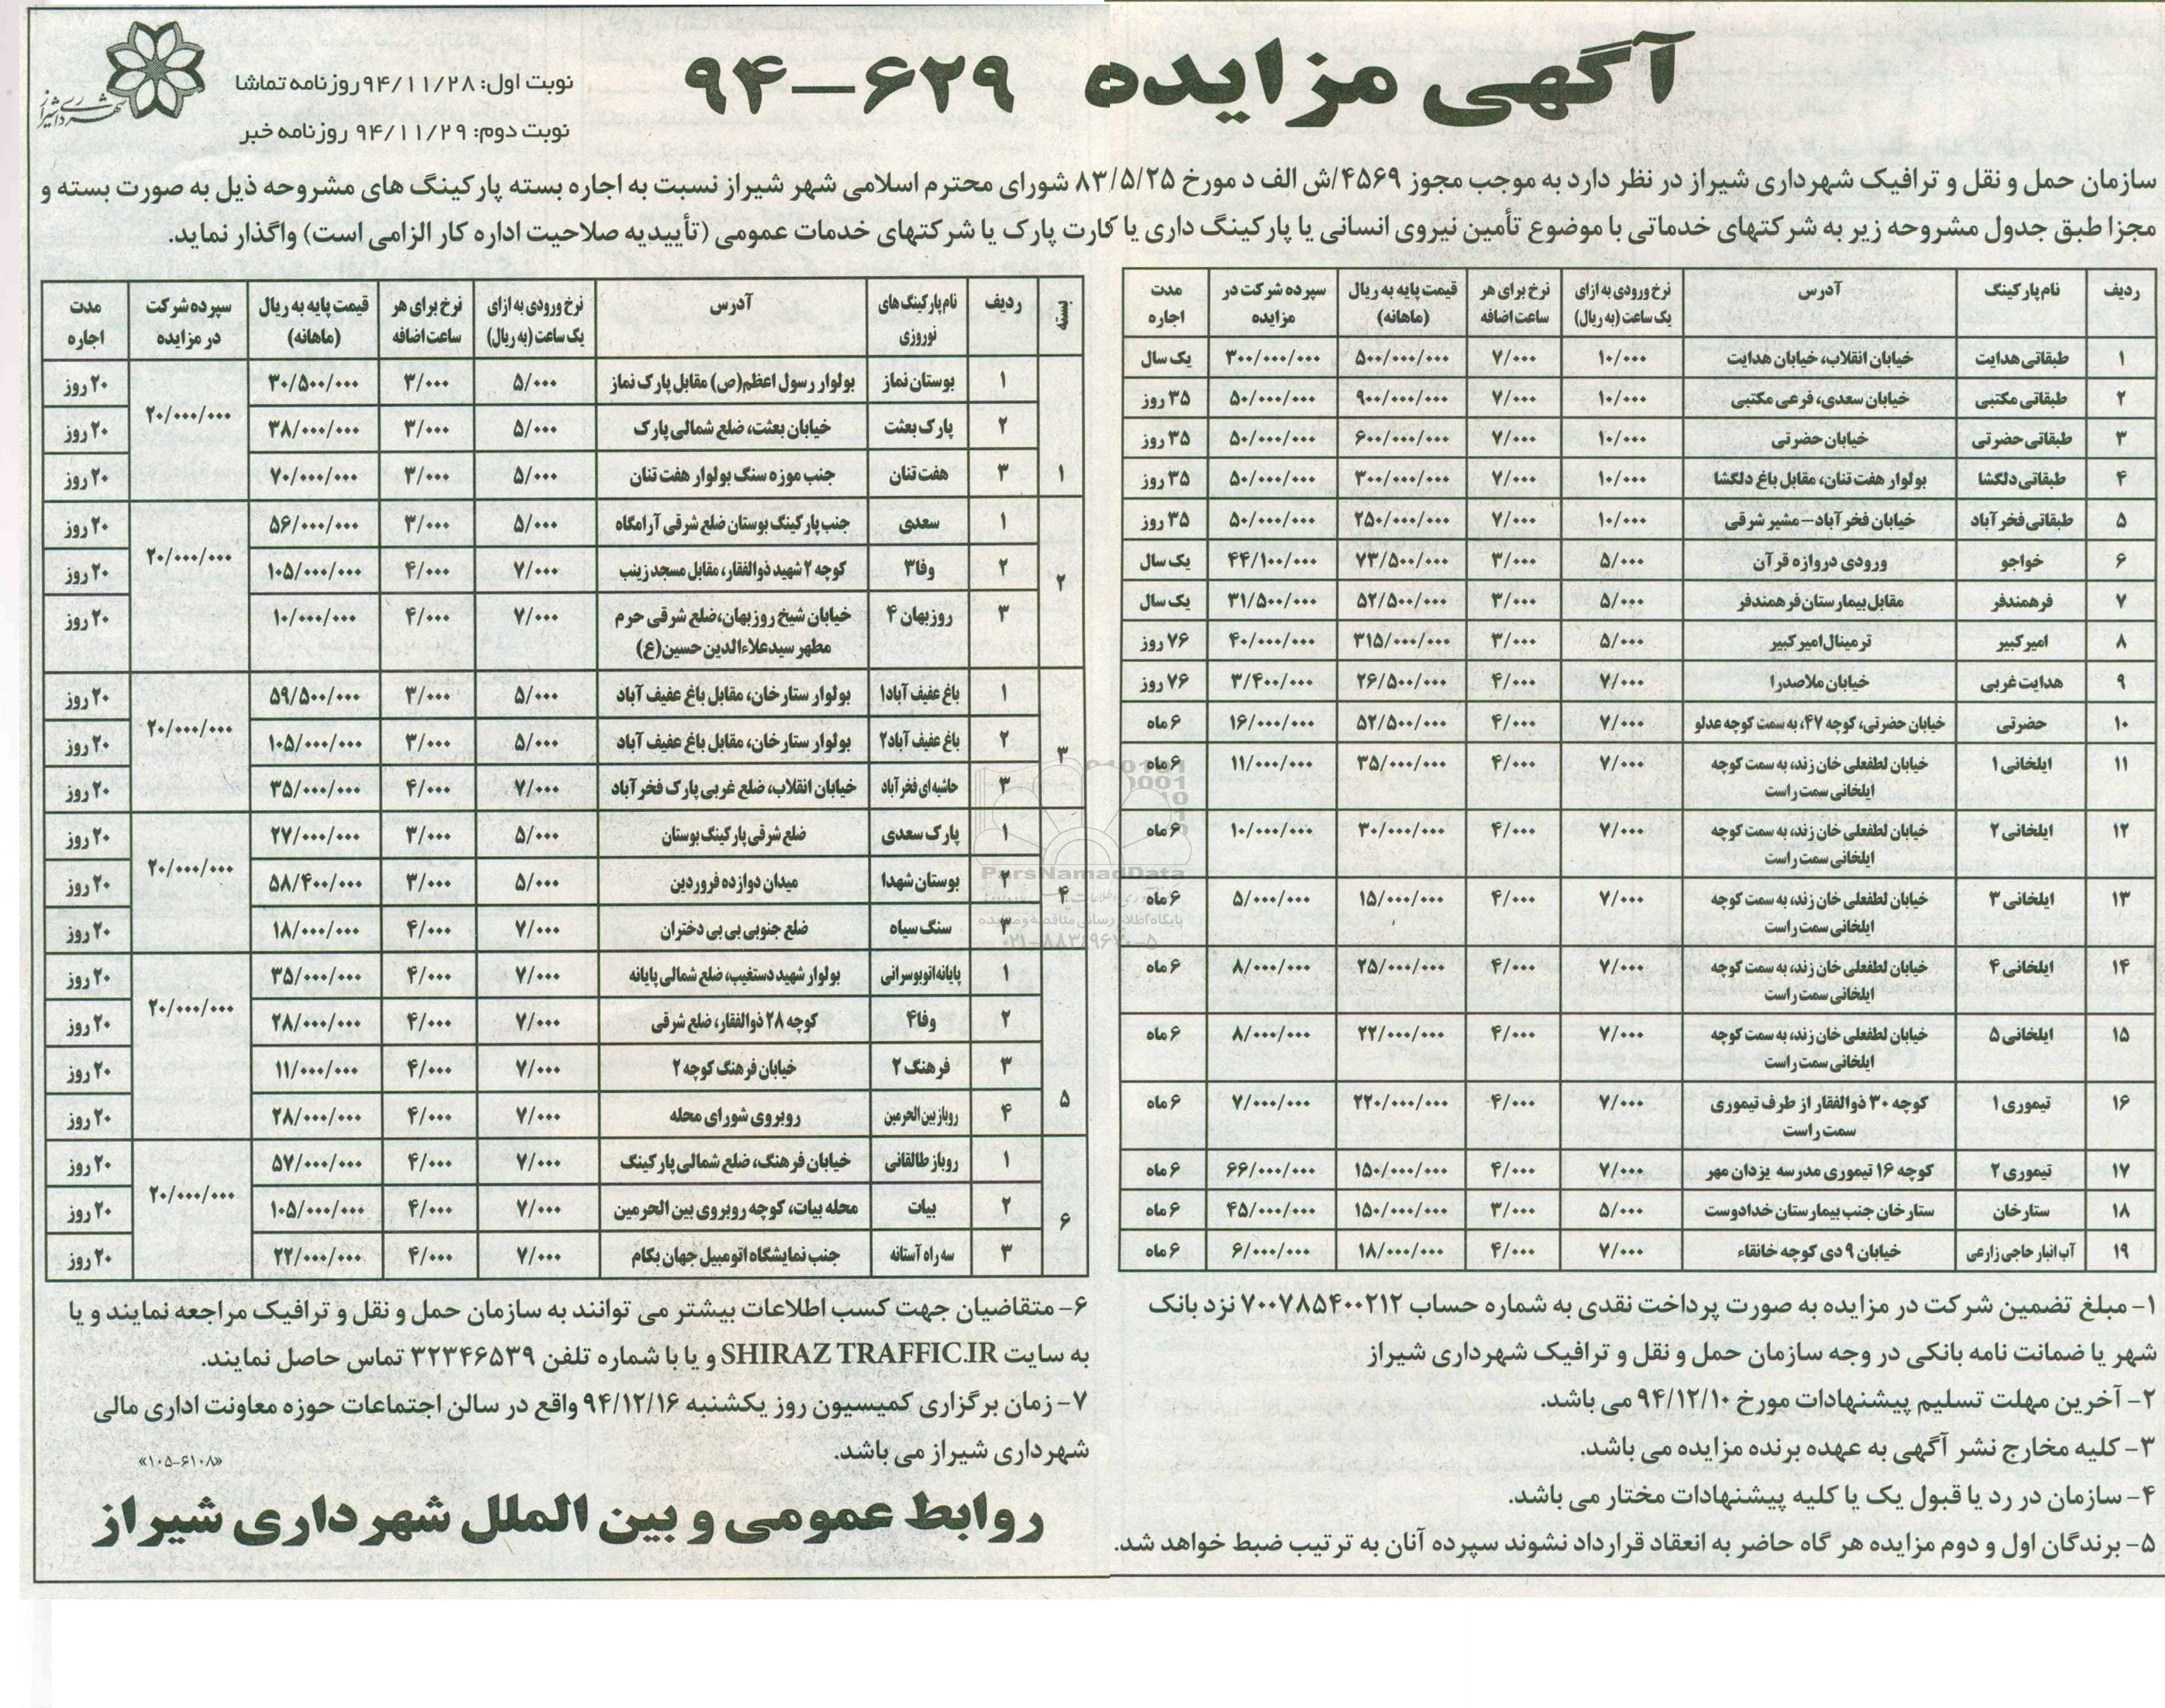 آگهی مزایده ۶۲۹-۹۴
نوبت اول: ۹۴/۱۱/۲۸ روزنامه تماشا
نوبت دوم: ۹۴/۱۱/۲۹ روزنامه خبر
شهرداری شیراز
سازمان حمل و نقل و ترافیک شهرداری شیراز در نظر دارد به موجب مجوز ۴۵۶۹/ش الف د مورخ ۸۳/۵/۲۵ شورای محترم اسلامی شهر شیراز نسبت به اجاره بسته پارکینگ های مشروحه ذیل به صورت بسته و
مجزا طبق جدول مشروحه زیر به شرکتهای خدماتی با موضوع تأمین نیروی انسانی یا پارکینگ داری یا کارت پارک یا شرکتهای خدمات عمومی (تأییدیه صلاحیت اداره کار الزامی است) واگذار نماید.
ردیف نام پارکینگ آدرس نرخ ورودی به ازای یک ساعت (به ریال) نرخ برای هر ساعت اضافه قیمت پایه به ریال (ماهانه) سپرده شرکت در مزایده مدت اجاره
۱ طبقاتی هدایت خیابان انقلاب، خیابان هدایت ۱۰/۰۰۰ ۷/۰۰۰ ۵۰۰/۰۰۰/۰۰۰ ۳۰۰/۰۰۰/۰۰۰ یک سال
۲ طبقاتی مکتبی خیابان سعدی، فرعی مکتبی ۱۰/۰۰۰ ۷/۰۰۰ ۹۰۰/۰۰۰/۰۰۰ ۵۰/۰۰۰/۰۰۰ ۳۵ روز
۳ طبقاتی حضرتی خیابان حضرتی ۱۰/۰۰۰ ۷/۰۰۰ ۶۰۰/۰۰۰/۰۰۰ ۵۰/۰۰۰/۰۰۰ ۳۵ روز
۴ طبقاتی دلگشا بولوار هفت تنان، مقابل باغ دلگشا ۱۰/۰۰۰ ۷/۰۰۰ ۳۰۰/۰۰۰/۰۰۰ ۵۰/۰۰۰/۰۰۰ ۳۵ روز
۵ طبقاتی فخرآباد خیابان فخرآباد-مشیر شرقی ۱۰/۰۰۰ ۷/۰۰۰ ۲۵۰/۰۰۰/۰۰۰ ۵۰/۰۰۰/۰۰۰ ۳۵ روز
۶ خواجو ورودی دروازه قرآن ۵/۰۰۰ ۳/۰۰۰ ۷۳/۵۰۰/۰۰۰ ۴۴/۱۰۰/۰۰۰ یک سال
۷ فرهمندفر مقابل بیمارستان فرهمندفر ۵/۰۰۰ ۳/۰۰۰ ۵۲/۵۰۰/۰۰۰ ۳۱/۵۰۰/۰۰۰ یک سال
۸ امیرکبیر ترمینال امیرکبیر ۵/۰۰۰ ۳/۰۰۰ ۳۱۵/۰۰۰/۰۰۰ ۴۰/۰۰۰/۰۰۰ ۷۶ روز
۹ هدایت غربی خیابان ملاصدرا ۷/۰۰۰ ۴/۰۰۰ ۲۶/۵۰۰/۰۰۰ ۳/۴۰۰/۰۰۰ ۷۶ روز
۱۰ حضرتی خیابان حضرتی، کوچه ۴۷، به سمت کوچه عدلو ۷/۰۰۰ ۴/۰۰۰ ۵۲/۵۰۰/۰۰۰ ۱۶/۰۰۰/۰۰۰ ۶ ماه
۱۱ ایلخانی ۱ خیابان لطفعلی خان زند، به سمت کوچه ایلخانی سمت راست ۷/۰۰۰ ۴/۰۰۰ ۳۵/۰۰۰/۰۰۰ ۱۱/۰۰۰/۰۰۰ ۶ ماه
۱۲ ایلخانی ۲ خیابان لطفعلی خان زند، به سمت کوچه ایلخانی سمت راست ۷/۰۰۰ ۴/۰۰۰ ۳۰/۰۰۰/۰۰۰ ۱۰/۰۰۰/۰۰۰ ۶ ماه
۱۳ ایلخانی ۳ خیابان لطفعلی خان زند، به سمت کوچه ایلخانی سمت راست ۷/۰۰۰ ۴/۰۰۰ ۱۵/۰۰۰/۰۰۰ ۵/۰۰۰/۰۰۰ ۶ ماه
۱۴ ایلخانی ۴ خیابان لطفعلی خان زند، به سمت کوچه ایلخانی سمت راست ۷/۰۰۰ ۴/۰۰۰ ۲۵/۰۰۰/۰۰۰ ۸/۰۰۰/۰۰۰ ۶ ماه
۱۵ ایلخانی ۵ خیابان لطفعلی خان زند، به سمت کوچه ایلخانی سمت راست ۷/۰۰۰ ۴/۰۰۰ ۲۲/۰۰۰/۰۰۰ ۸/۰۰۰/۰۰۰ ۶ ماه
۱۶ تیموری ۱ کوچه ۳۰ ذوالفقار از طرف تیموری سمت راست ۷/۰۰۰ ۴/۰۰۰ ۲۲۰/۰۰۰/۰۰۰ ۷/۰۰۰/۰۰۰ ۶ ماه
۱۷ تیموری ۲ کوچه ۱۶ تیموری مدرسه یزدان مهر ۷/۰۰۰ ۴/۰۰۰ ۱۵۰/۰۰۰/۰۰۰ ۶۶/۰۰۰/۰۰۰ ۶ ماه
۱۸ ستارخان ستارخان جنب بیمارستان خدادوست ۵/۰۰۰ ۳/۰۰۰ ۱۵۰/۰۰۰/۰۰۰ ۴۵/۰۰۰/۰۰۰ ۶ ماه
۱۹ آب انبار حاجی زارعی خیابان ۹ دی کوچه خانقاء ۷/۰۰۰ ۴/۰۰۰ ۱۸/۰۰۰/۰۰۰ ۶/۰۰۰/۰۰۰ ۶ ماه
۱- مبلغ تضمین شرکت در مزایده به صورت پرداخت نقدی به شماره حساب ۷۰۰۷۸۵۴۰۰۲۱۲ نزد بانک
شهر یا ضمانت نامه بانکی در وجه سازمان حمل و نقل و ترافیک شهرداری شیراز
۲- آخرین مهلت تسلیم پیشنهادات مورخ ۹۴/۱۲/۱۰ می باشد.
۳- کلیه مخارج نشر آگهی به عهده برنده مزایده می باشد.
۴- سازمان در رد یا قبول یک یا کلیه پیشنهادات مختار می باشد.
۵- برندگان اول و دوم مزایده هر گاه حاضر به انعقاد قرارداد نشوند سپرده آنان به ترتیب ضبط خواهد شد.
بسته ردیف نام پارکینگ های نوروزی آدرس نرخ ورودی به ازای یک ساعت (به ریال) نرخ برای هر ساعت اضافه قیمت پایه به ریال (ماهانه) سپرده شرکت در مزایده مدت اجاره
۱ بوستان نماز بولوار رسول اعظم(ص) مقابل پارک نماز ۵/۰۰۰ ۳/۰۰۰ ۳۰/۵۰۰/۰۰۰ ۲۰/۰۰۰/۰۰۰ ۲۰ روز
۲ پارک بعثت خیابان بعثت، ضلع شمالی پارک ۵/۰۰۰ ۳/۰۰۰ ۳۸/۰۰۰/۰۰۰ ۲۰ روز
۱ ۳ هفت تنان جنب موزه سنگ بولوار هفت تنان ۵/۰۰۰ ۳/۰۰۰ ۷۰/۰۰۰/۰۰۰ ۲۰ روز
۱ سعدی جنب پارکینگ بوستان ضلع شرقی آرامگاه ۵/۰۰۰ ۳/۰۰۰ ۵۶/۰۰۰/۰۰۰ ۲۰ روز
۲ ۲ وفا۳ کوچه ۲ شهید ذوالفقار، مقابل مسجد زینب ۷/۰۰۰ ۴/۰۰۰ ۱۰۵/۰۰۰/۰۰۰ ۲۰/۰۰۰/۰۰۰ ۲۰ روز
۳ روزبهان ۴ خیابان شیخ روزبهان،ضلع شرقی حرم مطهر سیدعلاءالدین حسین(ع) ۷/۰۰۰ ۴/۰۰۰ ۱۰/۰۰۰/۰۰۰ ۲۰ روز
۱ باغ عفیف آباد۱ بولوار ستارخان، مقابل باغ عفیف آباد ۵/۰۰۰ ۳/۰۰۰ ۵۹/۵۰۰/۰۰۰ ۲۰ روز
۳ ۲ باغ عفیف آباد۲ بولوار ستارخان، مقابل باغ عفیف آباد ۵/۰۰۰ ۳/۰۰۰ ۱۰۵/۰۰۰/۰۰۰ ۲۰/۰۰۰/۰۰۰ ۲۰ روز
۳ حاشیه ای فخرآباد خیابان انقلاب، ضلع غربی پارک فخرآباد ۷/۰۰۰ ۴/۰۰۰ ۳۵/۰۰۰/۰۰۰ ۲۰ روز
۱ پارک سعدی ضلع شرقی پارکینگ بوستان ۵/۰۰۰ ۳/۰۰۰ ۲۷/۰۰۰/۰۰۰ ۲۰ روز
۴ ۲ بوستان شهدا میدان دوازده فروردین ۵/۰۰۰ ۳/۰۰۰ ۵۸/۴۰۰/۰۰۰ ۲۰/۰۰۰/۰۰۰ ۲۰ روز
۳ سنگ سیاه ضلع جنوبی بی بی دختران ۷/۰۰۰ ۴/۰۰۰ ۱۸/۰۰۰/۰۰۰ ۲۰ روز
۱ پایانه اتوبوسرانی بولوار شهید دستغیب، ضلع شمالی پایانه ۷/۰۰۰ ۴/۰۰۰ ۳۵/۰۰۰/۰۰۰ ۲۰ روز
۲ وفا۴ کوچه ۲۸ ذوالفقار، ضلع شرقی ۷/۰۰۰ ۴/۰۰۰ ۲۸/۰۰۰/۰۰۰ ۲۰/۰۰۰/۰۰۰ ۲۰ روز
۳ فرهنگ ۲ خیابان فرهنگ کوچه ۲ ۷/۰۰۰ ۴/۰۰۰ ۱۱/۰۰۰/۰۰۰ ۲۰ روز
۵ ۴ روباز بین الحرمین روبروی شورای محله ۷/۰۰۰ ۴/۰۰۰ ۲۸/۰۰۰/۰۰۰ ۲۰ روز
۱ روباز طالقانی خیابان فرهنگ، ضلع شمالی پارکینگ ۷/۰۰۰ ۴/۰۰۰ ۵۷/۰۰۰/۰۰۰ ۲۰ روز
۶ ۲ بیات محله بیات، کوچه روبروی بین الحرمین ۷/۰۰۰ ۴/۰۰۰ ۱۰۵/۰۰۰/۰۰۰ ۲۰/۰۰۰/۰۰۰ ۲۰ روز
۳ سه راه آستانه جنب نمایشگاه اتومبیل جهان بکام ۷/۰۰۰ ۴/۰۰۰ ۲۲/۰۰۰/۰۰۰ ۲۰ روز
۶- متقاضیان جهت کسب اطلاعات بیشتر می توانند به سازمان حمل و نقل و ترافیک مراجعه نمایند و یا
به سایت SHIRAZ TRAFFIC.IR و یا با شماره تلفن ۳۲۳۴۶۵۳۹ تماس حاصل نمایند.
۷- زمان برگزاری کمیسیون روز یکشنبه ۹۴/۱۲/۱۶ واقع در سالن اجتماعات حوزه معاونت اداری مالی
شهرداری شیراز می باشد.
«۱۰۵-۶۱۰۸»
روابط عمومی و بین الملل شهرداری شیراز
ParsNamadData
پایگاه اطلاع رسانی مناقصه و مزایده